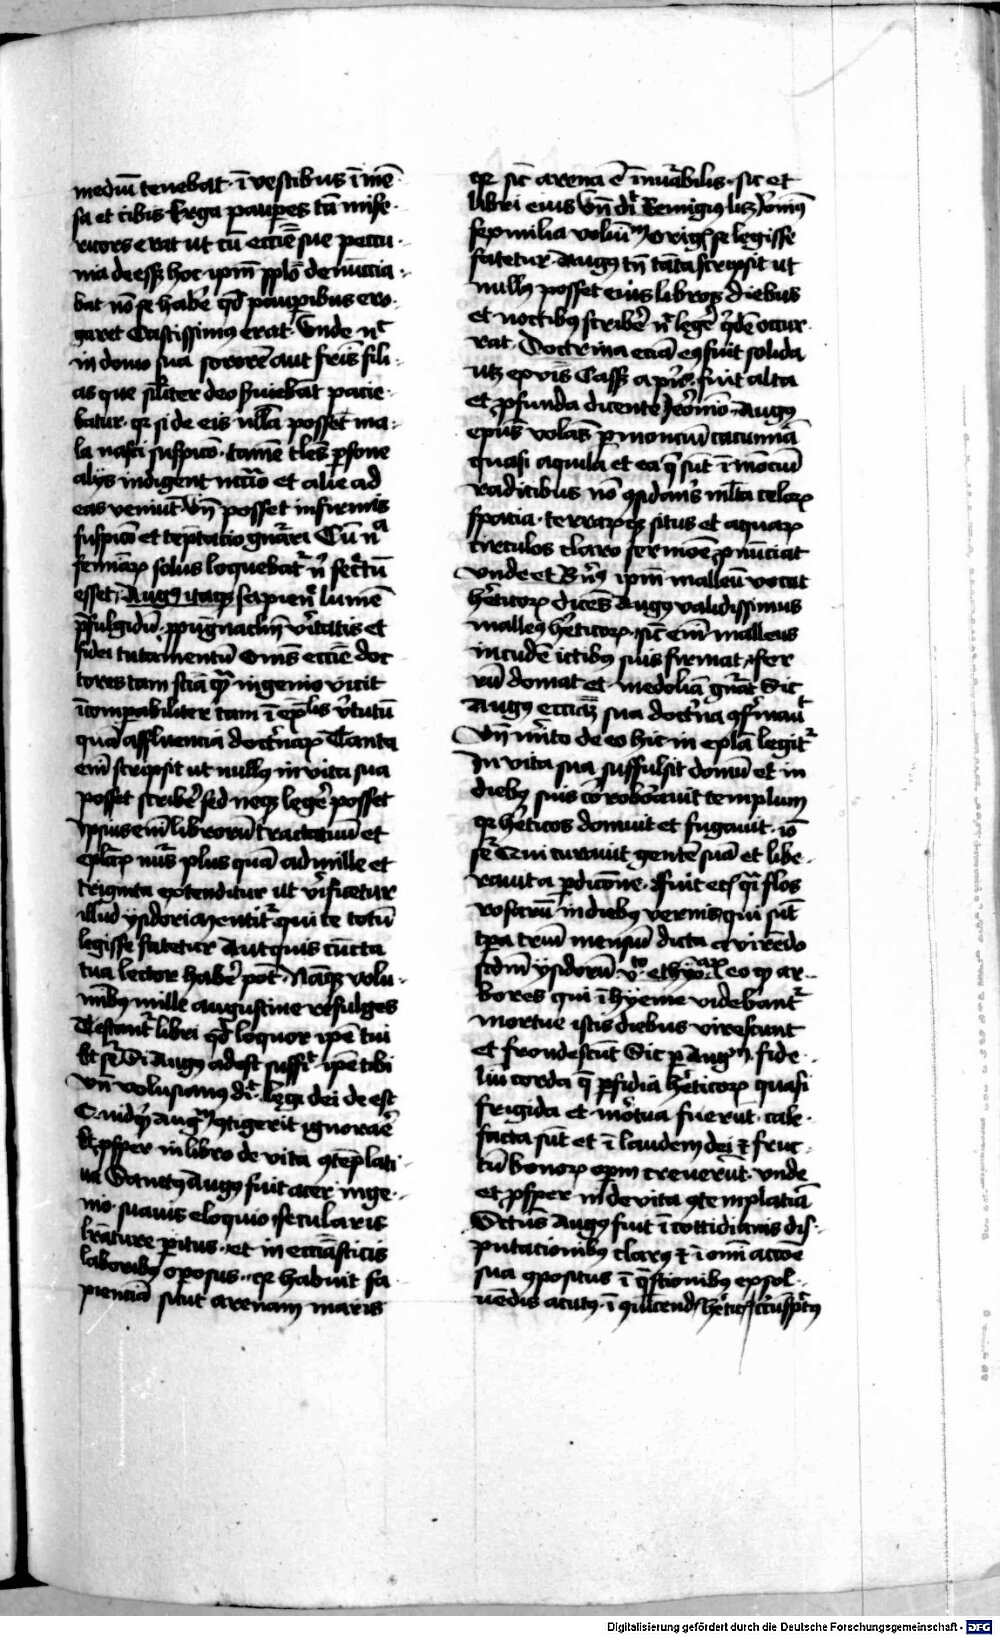 mediū tenebat · ī vestibus ī mē
sa et cibis Erga paupes tā mise
ricors erat ut cū eccīe sue peccu
nia deess hoc ipm pplo denūccia
bat nō se habē qd paupibus ero
garet Castissimus erat · Unde nc
in domo sua sororē aut fris fili
as que siliter deo huiebāt pacie
batur · qr si de eis nlla posset ma
la nasci suspico · tamē tles psone
alys indigent mīsterio et alie ad
eas veniūt Vñ posset infirmis
suspico et teptacio gnari Cū na
feminarꝫ solus loquebat nⁱ secrtū
esset Augꝰ itaqꝫ sapien lumē
pfulgidū ppugnaclm vitatis et
fidei tutamentū Oms eccīe doc
tores tam sciā qꝫ ingenio vicit
īcompabiliter tam ī explis vtutū
quā affluencia doctnarꝫ Tanta
em scripsit ut nullꝰ in vita sua
posset scribē sed neqꝫ legē posset
Ipsius em librorū tractatuū et
eplarꝫ nūs plus quā ad mille et
triginta extenditur ut vificetur
illud ysidori mentitr qui te totū
legisse fatetur Aut quis cūcta
tua lector habē pot · Naqꝫ volu
mībꝰ mille augustine refulges
Testant libri qd loquor ipe tui
Et sr Si Augꝰ adest suffit ipe tibi
Vñ volusianus dt · legi dei deest
Quidqd Augm ꝯtigerit ignorae
Et psper in libro de vita ꝯteplati
ua Sanctꝰ Augꝰ fuit acer inge
nio · suauis eloquio · secularis
lrature peritus · et in eccīasticis
laboribꝰ operosus · qr habuit sa
pienciā sicut arenam maris
qr sic arena ē īnumabilis · sic et
libri eius Vñ dt Remigius lꝫ Jeronimꝰ
sex milia voluū Origis se legisse
fatetur · Augꝰ tn tāta scripsit ut
nullꝰ posset eius libros diebus
et noctibꝰ scribē nc legē qde occur
rat · Doctrina eciā eꝰ fuit solida
utꝫ epvis Cass a pr · fuit alta
et pfunda dicente Jeronimo · Augꝰ
epūs volās p montiū cacumīa
quasi aquila et ea q sūt ī mōtiū
radicibus nō ꝯsidans mlta celorꝫ
spacia · terrarꝫqꝫ situs et aquarꝫ
circulos claro sermoē pnūciat
Unde et Bnꝰ ipm malleū vocat
heticorꝫ dicēs Augꝰ validissimus
malleꝰ heticorꝫ · sic em malleus
incudē ictibus suis firmat · fer
rū domat et medoliā gnat Sic
Augꝰ eccīaꝫ sua doctna ꝯfmaut
Vñ mito de eo hic in eplā legitr
In vita sua suffulsit domū et in
diebꝰ suis corobōauit templum
qr heticos domuit et fugauit · io
sr Qui curauit gentē suā et libe
rauit a pdicone · Fuit ecā qi flos
rosarū in diebꝰ vernis qui sūt
tpa triū mensiū dicta a virēdo
scdm ysidorū vto ethyoarꝫ eo qꝫ ar
bores qui ī hyeme videbantr
mortue istis diebus virescunt
et frondescūt Sic p Augm fide
liū corda q pfidia heticorꝫ quasi
frigida et mōtua fuerūt · cale
facta sūt et ī laudem dei ⁊ fruc
tū bonorꝫ opm creuerūt · Unde
et psper in de vita ꝯtemplatīa
Sctūs Augꝰ fuit ī cottidianis dis
putacionibꝰ clarꝰ ⁊ ī omi accoe
sua ꝯpositus ī qstionibꝰ exsol
uēdis acutꝰ · ī ꝯuīcend hetic circūspctꝰ
Digitalisierung gefördert durch die Deutsche Forschungsgemeinschaft - DFG